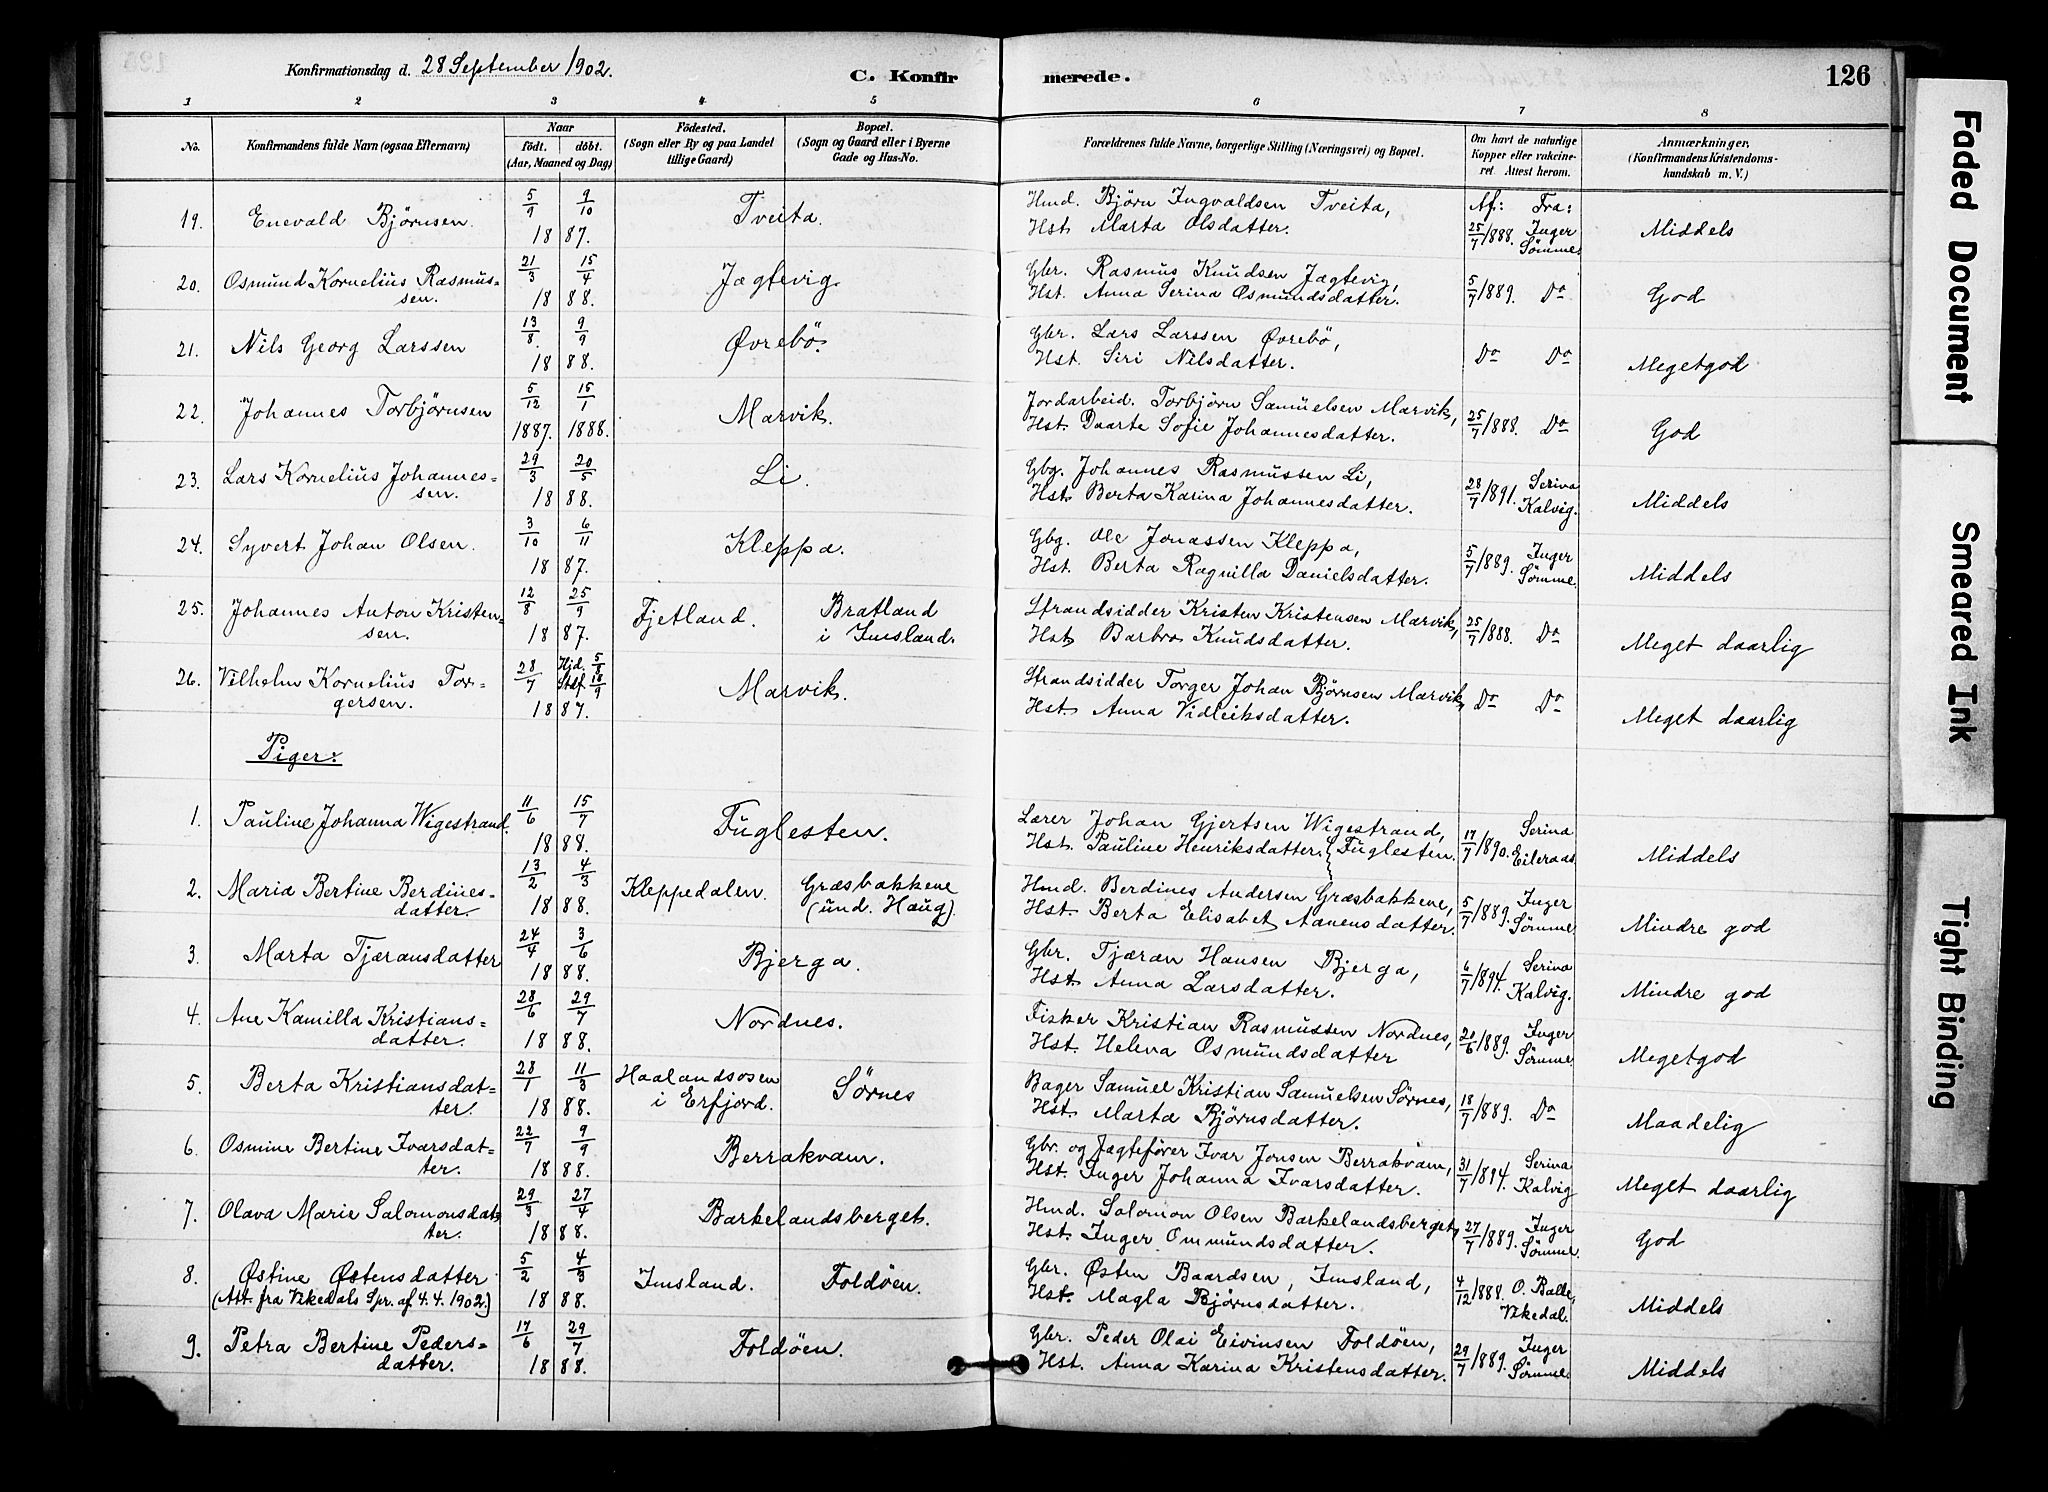 Konfirmationsdag d. 28 September 1902.
C. Konfirmerede.
126
1 2 3 4 5 6 7 8
No.
Konfirmandens fulde Navn (ogsaa Efternavn)
Naar
födt. döbt.
(Aar, Maaned og Dag)
Födested.
(Sogn eller By og paa Landet
tillige Gaard)
Bopæl.
(Sogn og Gaard eller i Byerne
Gade og Hus-No.
Forældrenes fulde Navne, borgerlige Stilling (Næringsvei) og Bopæl.
Om havt de naturlige
Kopper eller vakcine-
ret. Attest herom.
Anmærkninger,
(Konfirmandens Kristendoms-
kundskab m. V.)
19. Enevald Björnsen. 5/9 9/10 1887. Tveita. Hmd. Bjørn Ingvaldsen Tveita, Af: Fra:
Hst. Marta Olsdatter. 25/7 1888. Inger Sömme. Middels
20. Osmund Kornelius Rasmus= 21/3 15/4 Jægtevig. Gbr. Rasmus Knudsen Jægtevig,
sen. 1888. Hst. Anna Serina Osmundsdatter. 5/7 1889. Do God
21. Nils Georg Larssen 13/8 9/9 Øvrebö. Gbr. Lars Larssen Øvrebö,
1888. Hst. Siri Nilsdatter. Do Do Megetgod
22. Johannes Torbjørnsen 5/12 15/1 Marvik. Jordarbeid. Torbjörn Samuelsen Marvik,
1887. 1888. Hst. Daarte Sofie Johannesdatter. 25/7 1888. Do God
23. Lars Kornelius Johannes= 29/3 20/5 Li. Gbg. Johannes Rasmussen Li,
sen. 1888. Hst. Berta Karina Johannesdatter. 28/7 1891. Serina Kalvig. Middels
24. Syvert Johan Olsen. 3/10 6/11 Kleppa. Gbg. Ole Jonassen Kleppa,
1887. Hst. Berta Ragnilla Danielsdatter. 5/7 1889. Inger Sömme. Middels
25. Johannes Anton Kristen= 12/8 25/9 Fjetland. Bratland Strandsidder Kristen Kristensen Marvik,
sen. 1887. i Imsland. Hst. Barbro Knudsdatter. 25/7 1888. Do Meget daarlig
26. Vilhelm Kornelius Tor= 28/7 Hjd. 5/8 Marvik. Strandsidder Torger Johan Björnsen Marvik,
gersen. 1887. Hst. Anna Vidleiksdatter. Do Do Meget daarlig
Piger:
1. Pauline Johanna Wigestrand. 11/6 15/7 Fuglesten. Lærer Johan Gjertsen Wigestrand,
1888. Hst. Pauline Henriksdatter. Fuglesten. 17/7 1890. Serina Eileraas. Middels
2. Maria Bertine Berdines= 13/2 4/3 Kleppedalen. Græsbakkene Hmd. Berdines Andersen Græsbakkene,
datter. 1888. (und. Haug). Hst. Berta Elisabet Aanensdatter. 5/7 1889. Inger Sömme. Mindre god
3. Marta Tjæransdatter 24/4 3/6 Bjerga. Gbr. Tjæran Hansen Bjerga,
1888. Hst. Anna Larsdatter. 6/7 1894. Serina Kalvig. Mindre god
4. Ane Kamilla Kristians= 28/6 29/7 Nordnes. Fisker Kristian Rasmussen Nordnes,
datter. 1888. Hst. Helena Osmundsdatter 20/6 1889. Inger Sömme. Megetgod
5. Berta Kristiansdat= 28/1 11/3 Haalandsosen Sørnes Bager Samuel Kristian Samuelsen Sørnes,
ter. 1888. i Erfjord. Hst. Marta Björnsdatter. 18/7 1889. Do Maadelig
6. Osmine Bertine Ivarsdat= 22/7 9/9 Berrakvam. Gbr. og Jægtefører Ivar Jonsen Berrakvam,
ter. 1888. Hst. Inger Johanna Ivarsdatter. 31/7 1894. Serina Kalvig Meget daarlig
7. Olava Marie Salomonsdat= 29/3 27/4 Barkelandsberget. Hmd. Salomon Olsen Barkelandsberget,
ter. 1888. Hst. Inger Ommundsdatter. 27/7 1889. Inger Sömme. God
8. Østine Østensdatter 5/2 4/3 Imsland. Foldöen. Gbr. Østen Baardsen, Imsland,
(Att. fra Vikedals Spr. af 4.4.1902.) 1888. Hst. Magla Björnsdatter. 4/12 1888. O. Balle, Vikedal. Middels
9. Petra Bertine Peders= 17/6 29/7 Foldöen. Gbr. Peder Olai Eivinsen Foldöen,
datter. 1888. Hst. Anna Karina Kristensdatter. 29/7 1889. Inger Sömme. Middels
Faded Document
Smeared Ink
Tight Binding